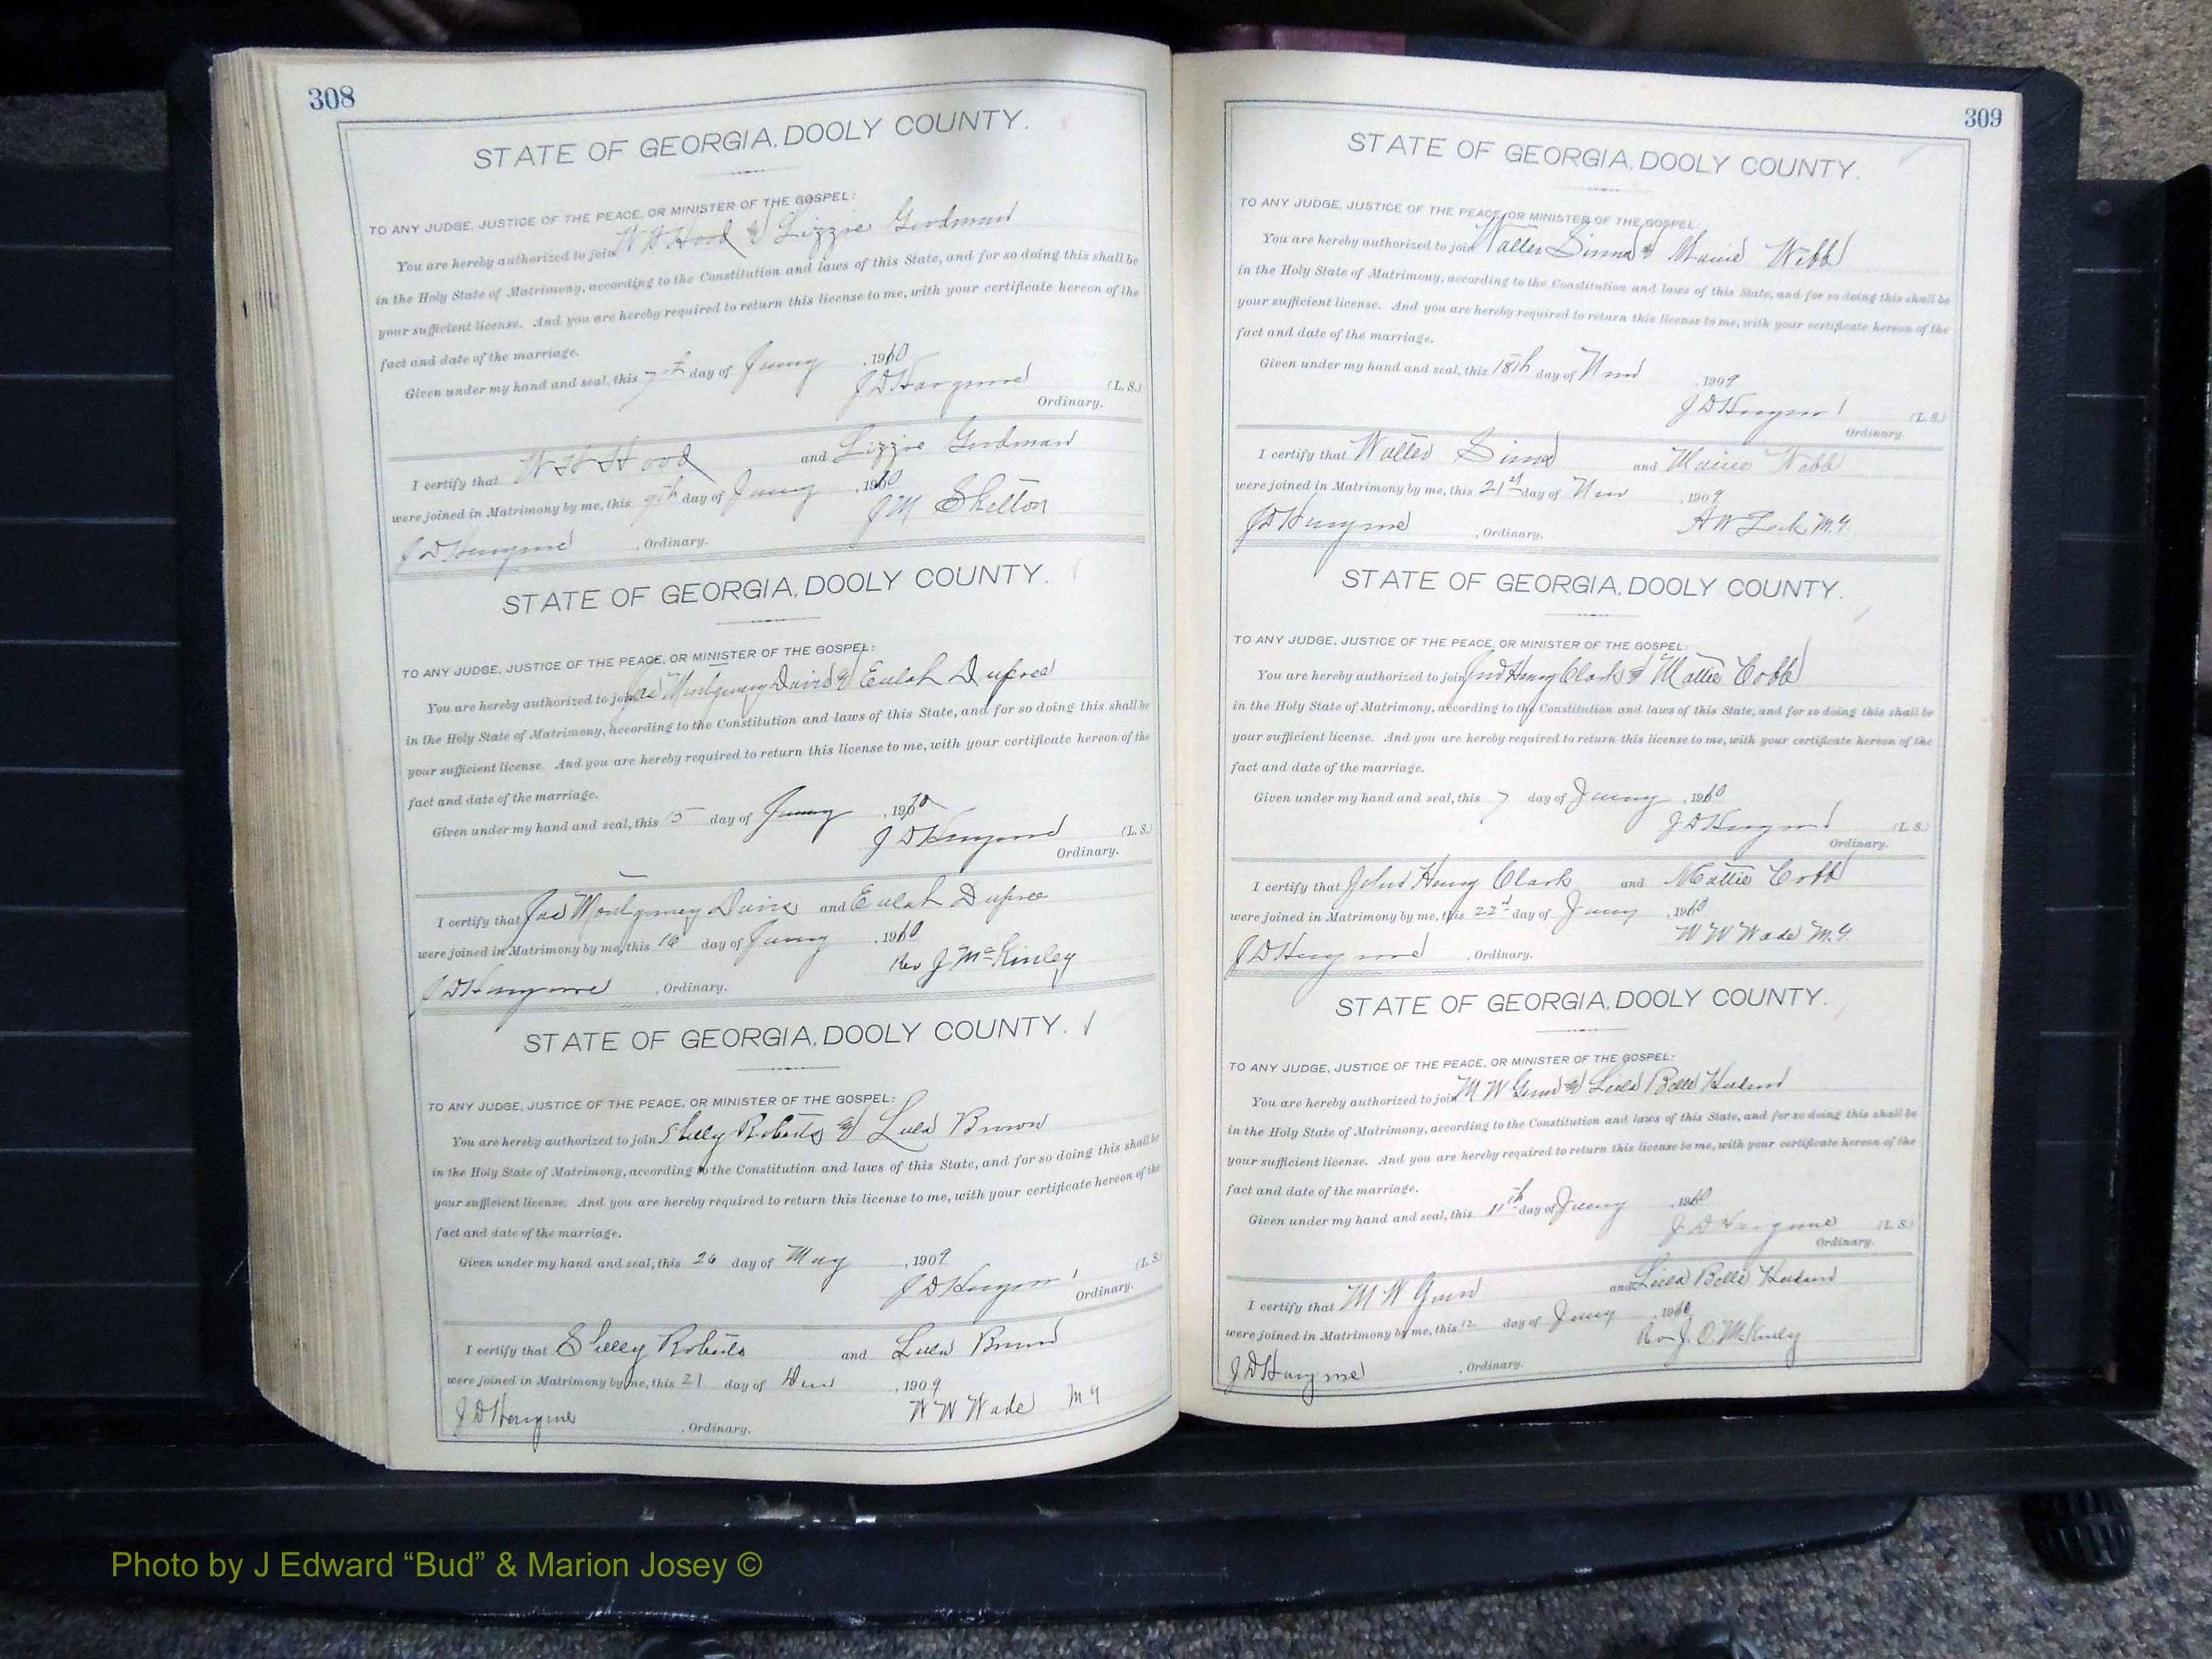 308
STATE OF GEORGIA, DOOLY COUNTY.
TO ANY JUDGE, JUSTICE OF THE PEACE, OR MINISTER OF THE GOSPEL:
You are hereby authorized to join W H Hood & Lizzie Goodman
in the Holy State of Matrimony, according to the Constitution and laws of this State, and for so doing this shall be
your sufficient license. And you are hereby required to return this license to me, with your certificate hereon of the
fact and date of the marriage.
Given under my hand and seal, this 7th day of Jany, 1910
J D Hargrove (L. S.)
Ordinary.
I certify that W H Hood and Lizzie Goodman
were joined in Matrimony by me, this 9th day of Jany, 1910
J M Shelton
J D Hargrove, Ordinary.
STATE OF GEORGIA, DOOLY COUNTY.
TO ANY JUDGE, JUSTICE OF THE PEACE, OR MINISTER OF THE GOSPEL:
You are hereby authorized to join Jas Montgomery Davis & Eulah Dupree
in the Holy State of Matrimony, according to the Constitution and laws of this State, and for so doing this shall be
your sufficient license. And you are hereby required to return this license to me, with your certificate hereon of the
fact and date of the marriage.
Given under my hand and seal, this 15 day of Jany, 1910
J D Hargrove (L. S.)
Ordinary.
I certify that Jas Montgomery Davis and Eulah Dupree
were joined in Matrimony by me, this 16 day of Jany, 1910
Rev J McKinley
J D Hargrove, Ordinary.
STATE OF GEORGIA, DOOLY COUNTY.
TO ANY JUDGE, JUSTICE OF THE PEACE, OR MINISTER OF THE GOSPEL:
You are hereby authorized to join Shelly Roberts & Lula Brown
in the Holy State of Matrimony, according to the Constitution and laws of this State, and for so doing this shall be
your sufficient license. And you are hereby required to return this license to me, with your certificate hereon of the
fact and date of the marriage.
Given under my hand and seal, this 26 day of May, 1909
J D Hargrove (L. S.)
Ordinary.
I certify that Shelly Roberts and Lula Brown
were joined in Matrimony by me, this 21 day of, 1909
W W Wade M G
J D Hargrove, Ordinary.
309
STATE OF GEORGIA, DOOLY COUNTY.
TO ANY JUDGE, JUSTICE OF THE PEACE, OR MINISTER OF THE GOSPEL:
You are hereby authorized to join Walter & Webb
in the Holy State of Matrimony, according to the Constitution and laws of this State, and for so doing this shall be
your sufficient license. And you are hereby required to return this license to me, with your certificate hereon of the
fact and date of the marriage.
Given under my hand and seal, this 18th day of Nov, 1909
J D Hargrove (L. S.)
Ordinary.
I certify that Walter and Webb
were joined in Matrimony by me, this 21st day of Nov, 1909
A W M. G.
J D Hargrove, Ordinary.
STATE OF GEORGIA, DOOLY COUNTY.
TO ANY JUDGE, JUSTICE OF THE PEACE, OR MINISTER OF THE GOSPEL:
You are hereby authorized to join Jno Henry Clark & Mattie Cobb
in the Holy State of Matrimony, according to the Constitution and laws of this State, and for so doing this shall be
your sufficient license. And you are hereby required to return this license to me, with your certificate hereon of the
fact and date of the marriage.
Given under my hand and seal, this 7 day of Jany, 1910
J D Hargrove (L. S.)
Ordinary.
I certify that John Henry Clark and Mattie Cobb
were joined in Matrimony by me, this 22d day of Jany, 1910
W W Wade M. G.
J D Hargrove, Ordinary.
STATE OF GEORGIA, DOOLY COUNTY.
TO ANY JUDGE, JUSTICE OF THE PEACE, OR MINISTER OF THE GOSPEL:
You are hereby authorized to join M W & Lula Belle
in the Holy State of Matrimony, according to the Constitution and laws of this State, and for so doing this shall be
your sufficient license. And you are hereby required to return this license to me, with your certificate hereon of the
fact and date of the marriage.
Given under my hand and seal, this 11th day of Jany, 1910
J D Hargrove (L. S.)
Ordinary.
I certify that M W and Lula Belle
were joined in Matrimony by me, this 12 day of Jany, 1910
Rev J. O. McKinly
J D Hargrove, Ordinary.
Photo by J Edward “Bud” & Marion Josey ©